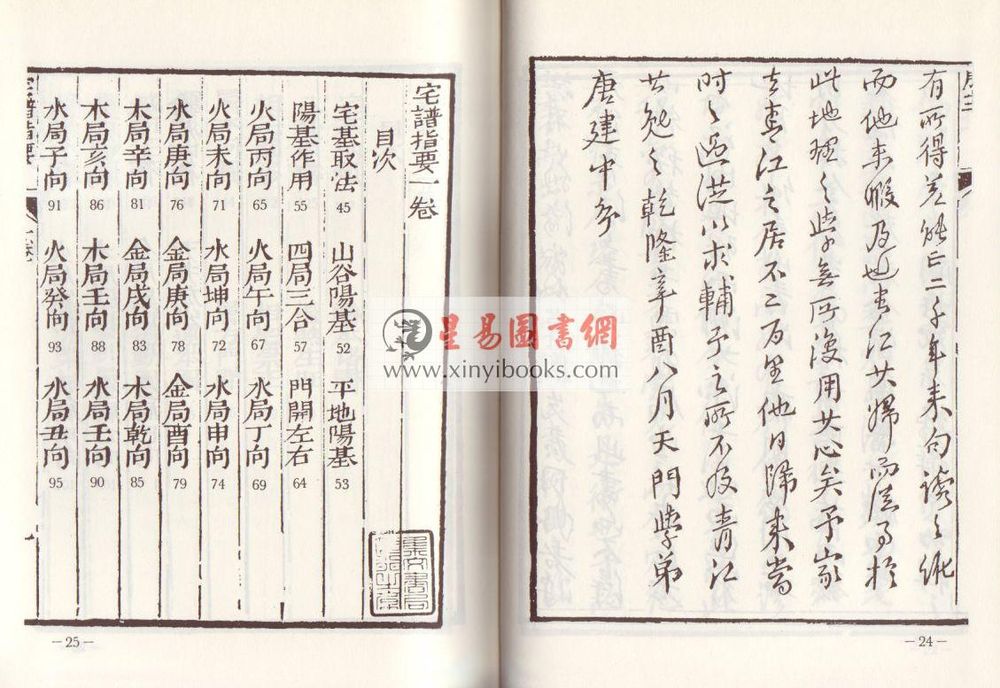 有所得能正二千年来句讀之
而他未暇及也青江其歸而從事於
此地理之學無所復用其心矣予家
去青江之居不二百里他日歸来當
時之過從以求輔予之所不及青江
其勉之乾隆辛酉八月天門學弟
唐建中序
—24—
宅譜指要一卷
目次
宅基取法 45 山谷陽基 52 平地陽基 53
陽基作用 55 四局三合 57 門開左右 64
火局丙向 65 火局午向 67 水局丁向 69
火局未向 71 水局坤向 72 水局申向 74
水局庚向 76 金局庚向 78 金局酉向 79
木局辛向 81 金局戌向 83 木局乾向 85
木局亥向 86 木局壬向 88 水局壬向 90
水局子向 91 火局癸向 93 水局丑向 95
宅譜指要
—25—
星易圖書網
www.xinyibooks.com